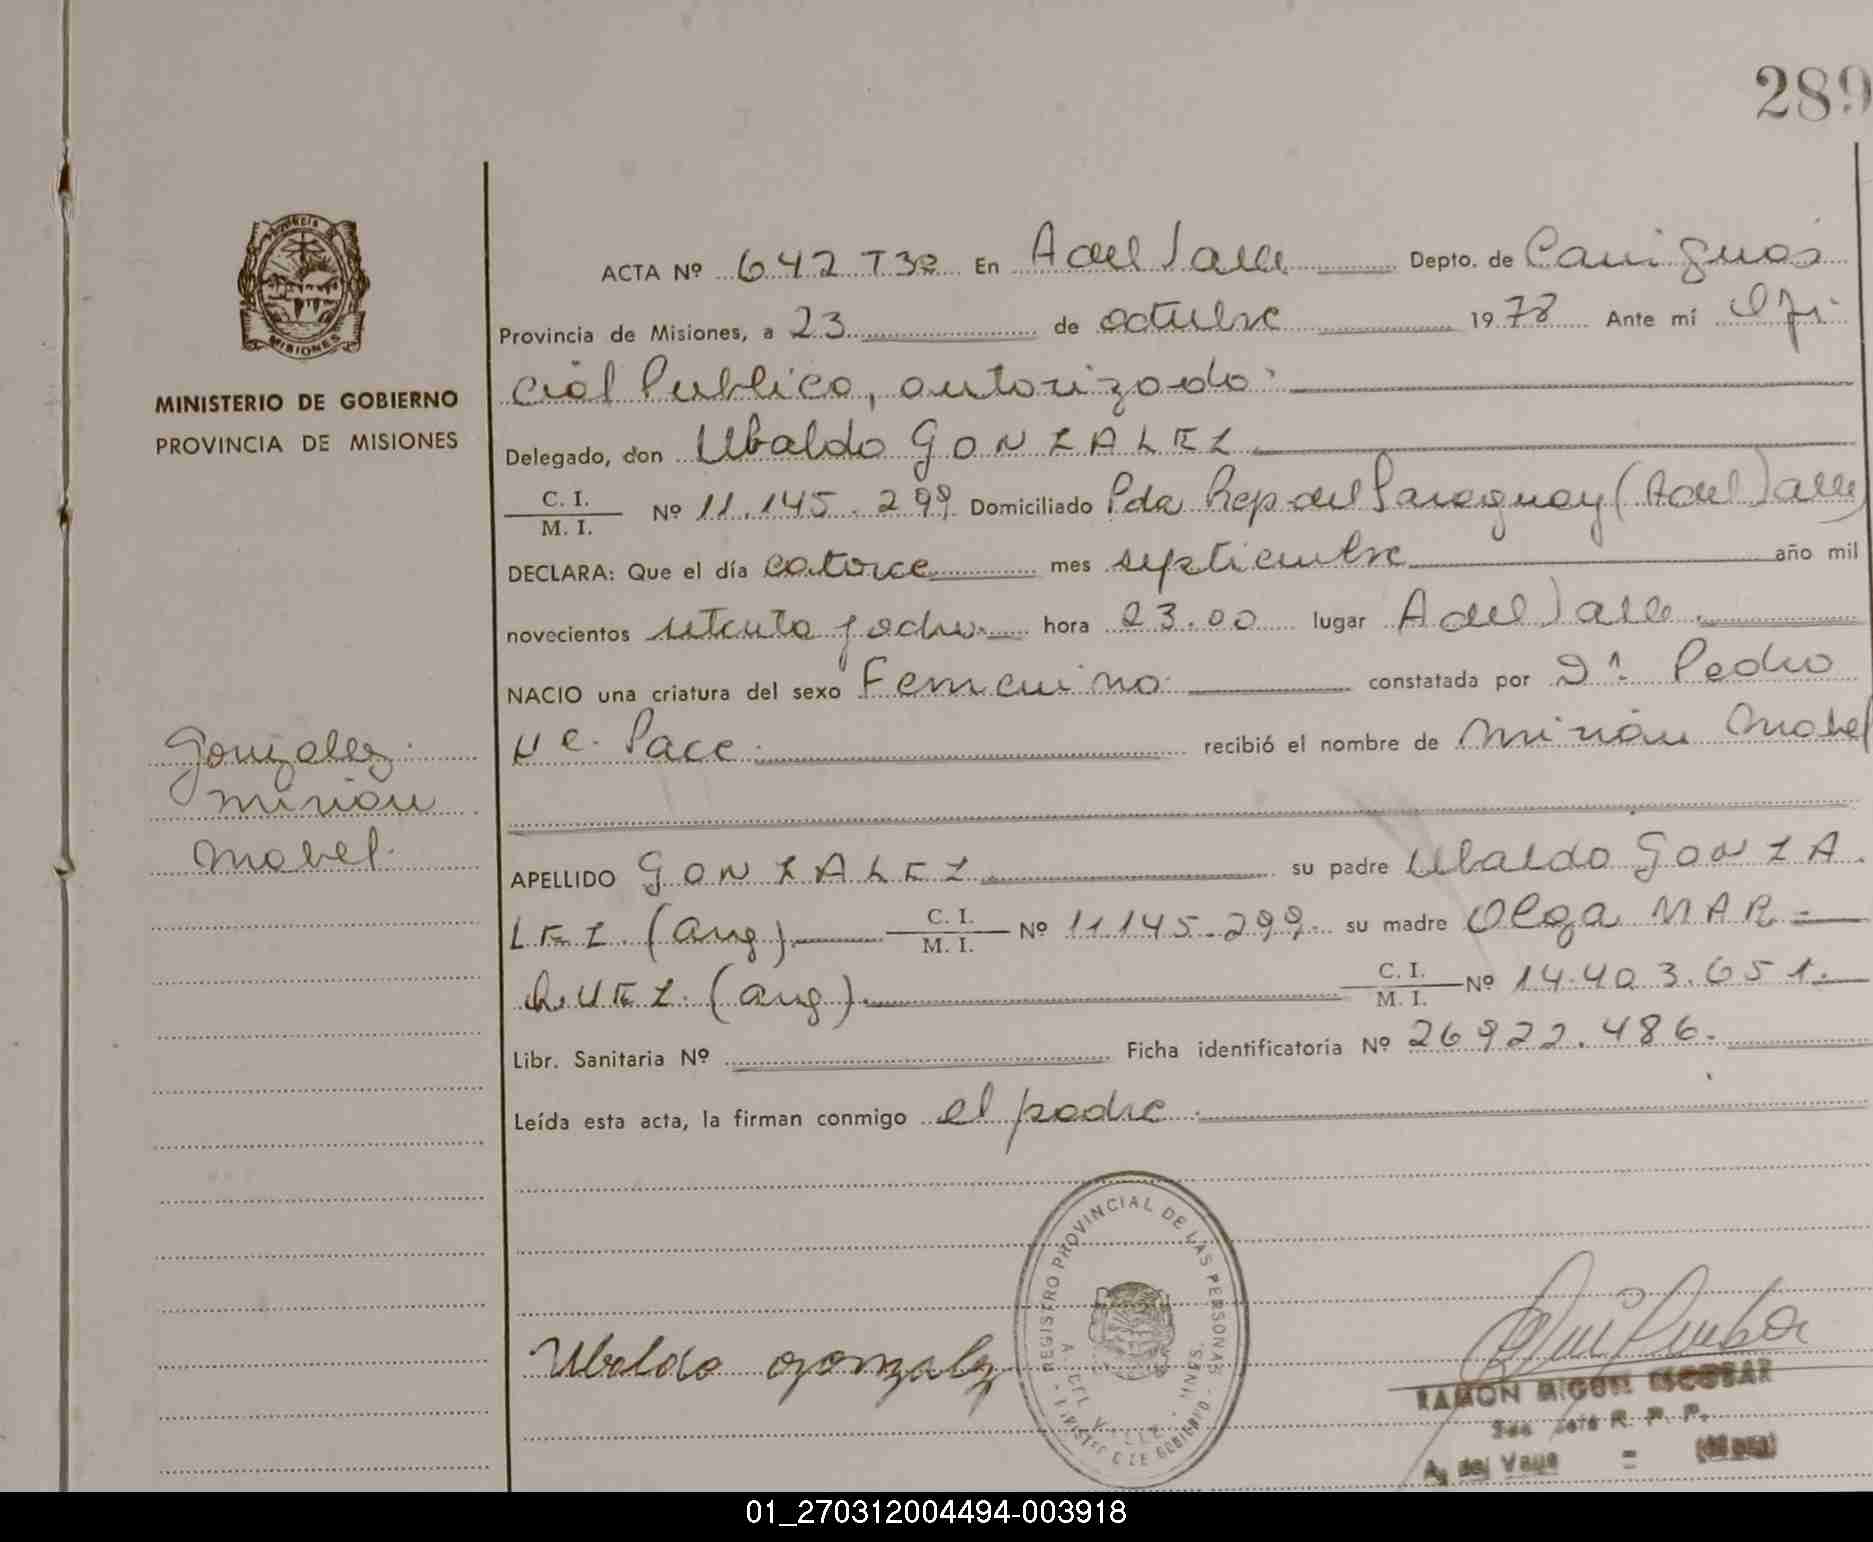 289
MISIONES
MINISTERIO DE GOBIERNO
PROVINCIA DE MISIONES
Gonzalez
Mirian
Mabel.
ACTA Nº 642 T3º En A del Valle Depto. de Cainguás
Provincia de Misiones, a 23 de octubre 1978 Ante mí Ofi
cial Publico, autorizado
Delegado, don Ubaldo GONZALEZ
C. I. / M. I. Nº 11.145.299 Domiciliado Pda Rep del Paraguay (A del Valle)
DECLARA: Que el día catorce mes septiembre año mil
novecientos setenta y ocho hora 23.00 lugar A del Valle
NACIO una criatura del sexo Femenino constatada por Dr. Pedro
Pace. recibió el nombre de Mirian Mabel
APELLIDO GONZALEZ su padre Ubaldo GONZA
LEZ (arg) C. I. / M. I. Nº 11.145.299 su madre Olga MAR-
QUEZ (arg) C. I. / M. I. Nº 14.403.651.
Libr. Sanitaria Nº Ficha identificatoria Nº 26922.486.
Leída esta acta, la firman conmigo el padre
REGISTRO PROVINCIAL DE LAS PERSONAS
A. DEL VALLE - MNES.
MINISTERIO DE GOBIERNO
Ubaldo gonzalez
RAMON MIGUEL ESCOBAR
R. P. P.
A. del Valle
01_270312004494-003918